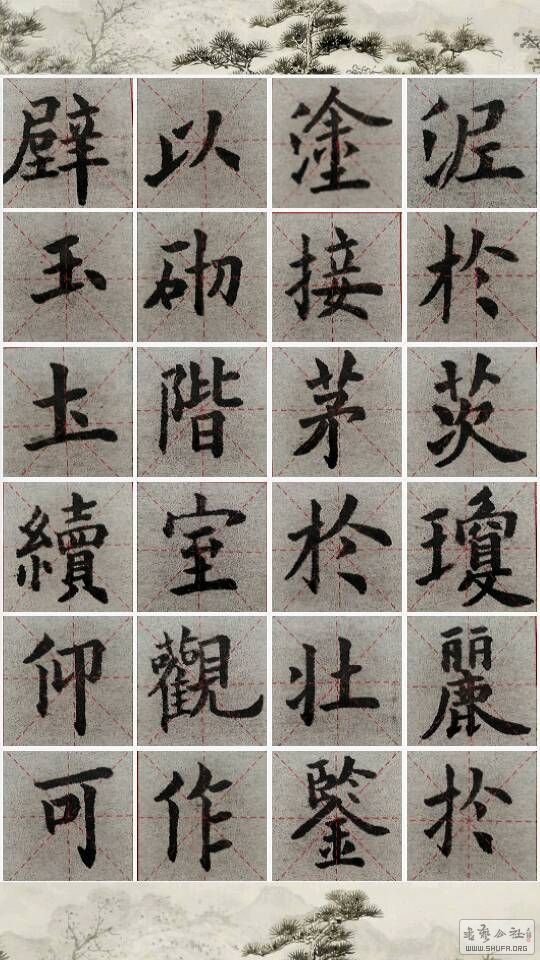 壁以塗泥
玉砌接於
土階茅茨
續室於瓊
仰觀壮麗
可作鑒於
书艺公社
WWW.SHUFA.ORG